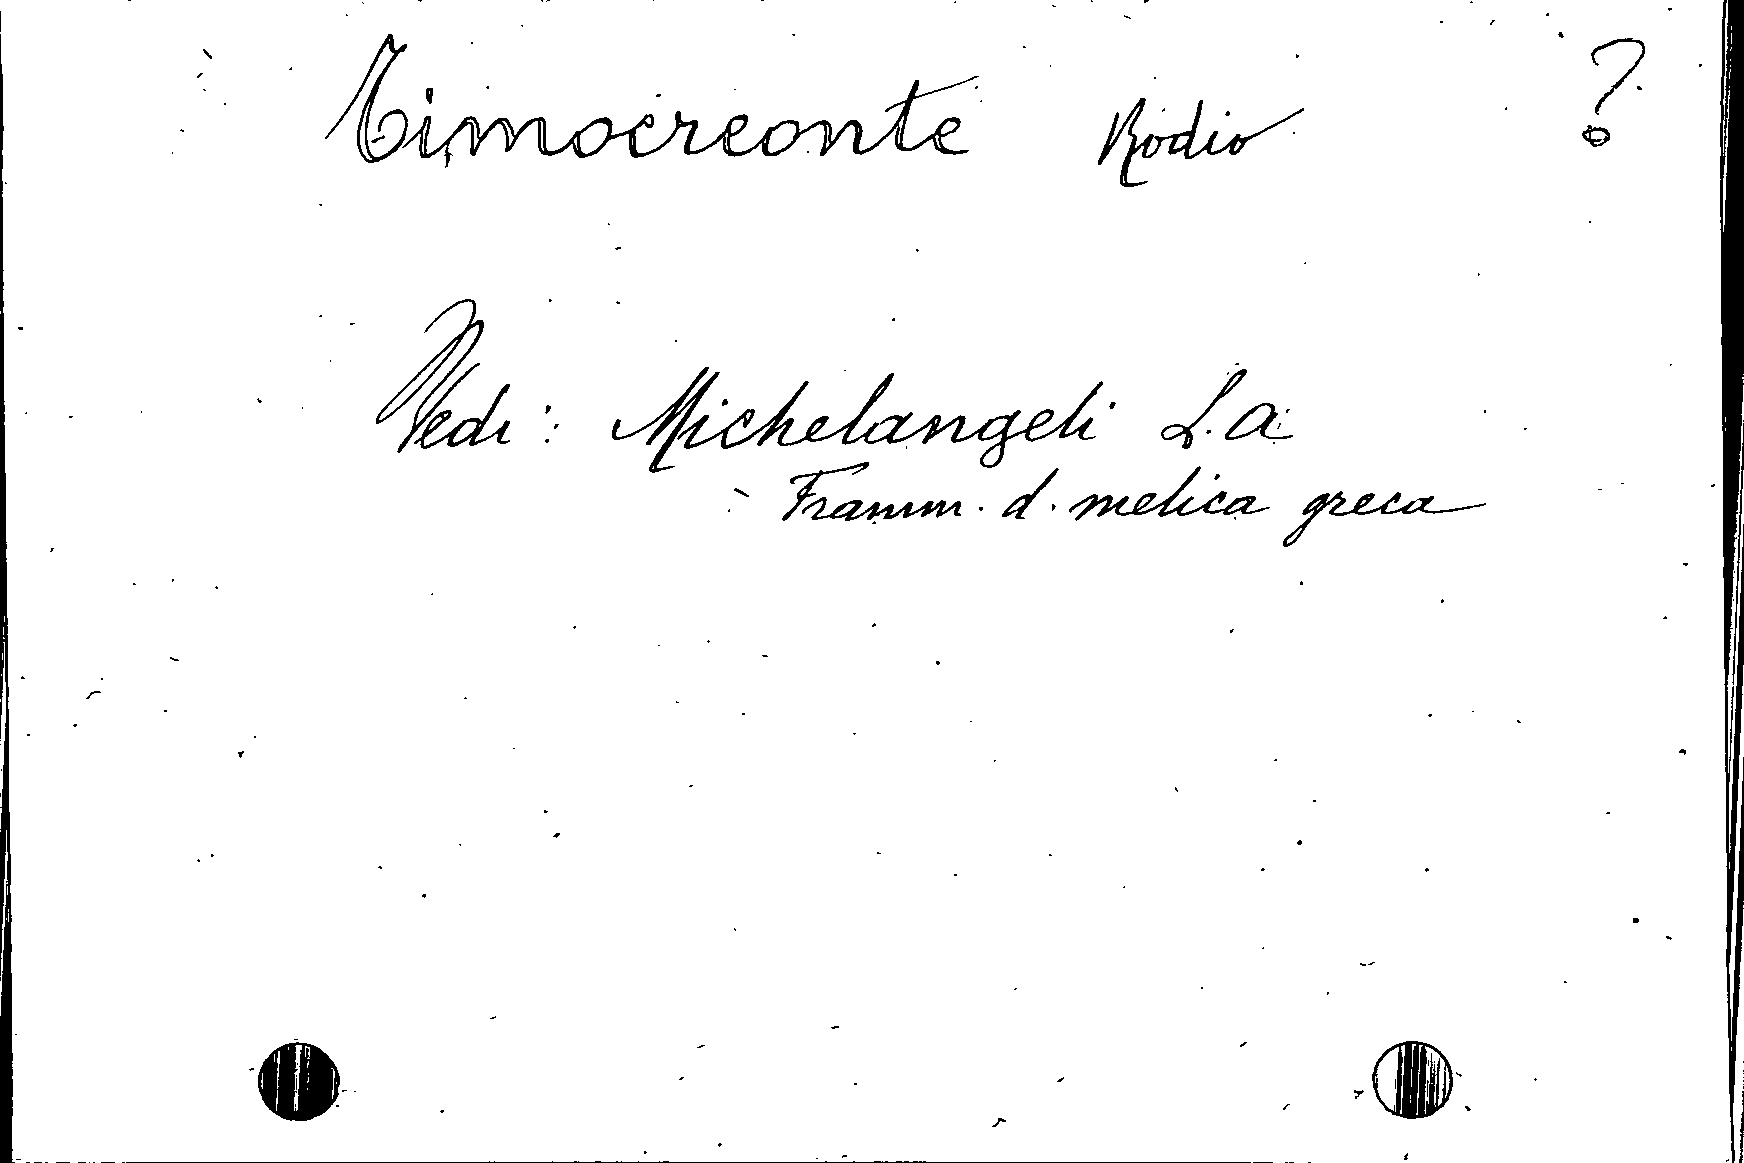 Timocreonte Rodio ?
Vedi: Michelangeli L. A.
- Framm. d. melica greca